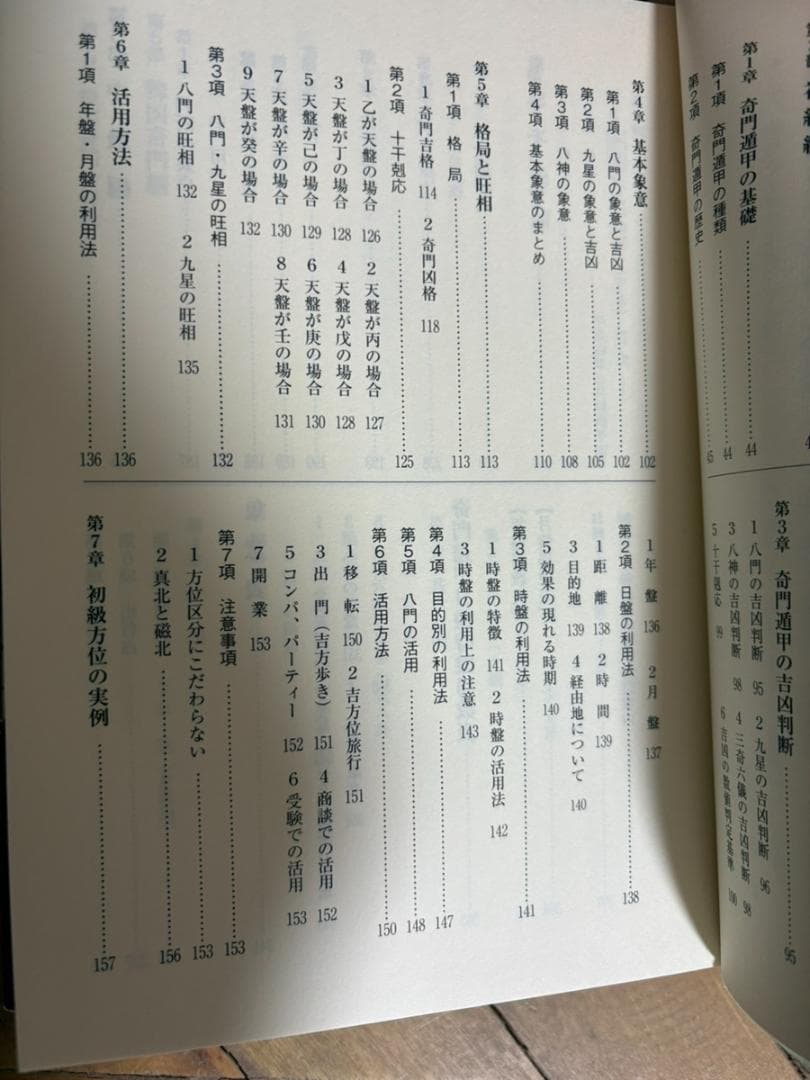 第1章 奇門遁甲の基礎……44
第1項 奇門遁甲の種類……44
第2項 奇門遁甲の歴史……45
第3章 奇門遁甲の吉凶判断……95
1 八門の吉凶判断 95 2 九星の吉凶判断 96
3 八神の吉凶判断 98 4 三奇六儀の吉凶判断 98
5 十干剋応 99 6 吉凶の数値判定基準 100
第4章 基本象意……102
第1項 八門の象意と吉凶……102
第2項 九星の象意と吉凶……105
第3項 八神の象意……108
第4項 基本象意のまとめ……110
第5章 格局と旺相……113
第1項 格局……113
1 奇門吉格 114 2 奇門凶格 118
第2項 十干剋応……125
1 乙が天盤の場合 126 2 天盤が丙の場合 127
3 天盤が丁の場合 128 4 天盤が戊の場合 128
5 天盤が己の場合 129 6 天盤が庚の場合 130
7 天盤が辛の場合 130 8 天盤が壬の場合 131
9 天盤が癸の場合 132
第3項 八門・九星の旺相……132
1 八門の旺相 132 2 九星の旺相 135
第6章 活用方法……136
第1項 年盤・月盤の利用法……136
1 年盤 136 2 月盤 137
第2項 日盤の利用法……138
1 距離 138 2 時間 139
3 目的地 139 4 経由地について 140
5 効果の現れる時期 140
第3項 時盤の利用法……141
1 時盤の特徴 141 2 時盤の活用法 142
3 時盤の利用上の注意 143
第4項 目的別の利用法……147
第5項 八門の活用……148
第6項 活用方法……150
1 移転 150 2 吉方位旅行 151
3 出門(吉方歩き) 151 4 商談での活用 152
5 コンパ、パーティー 152 6 受験での活用 153
7 開業 153
第7項 注意事項……153
1 方位区分にこだわらない……153
2 真北と磁北……156
第7章 初級方位の実例……157